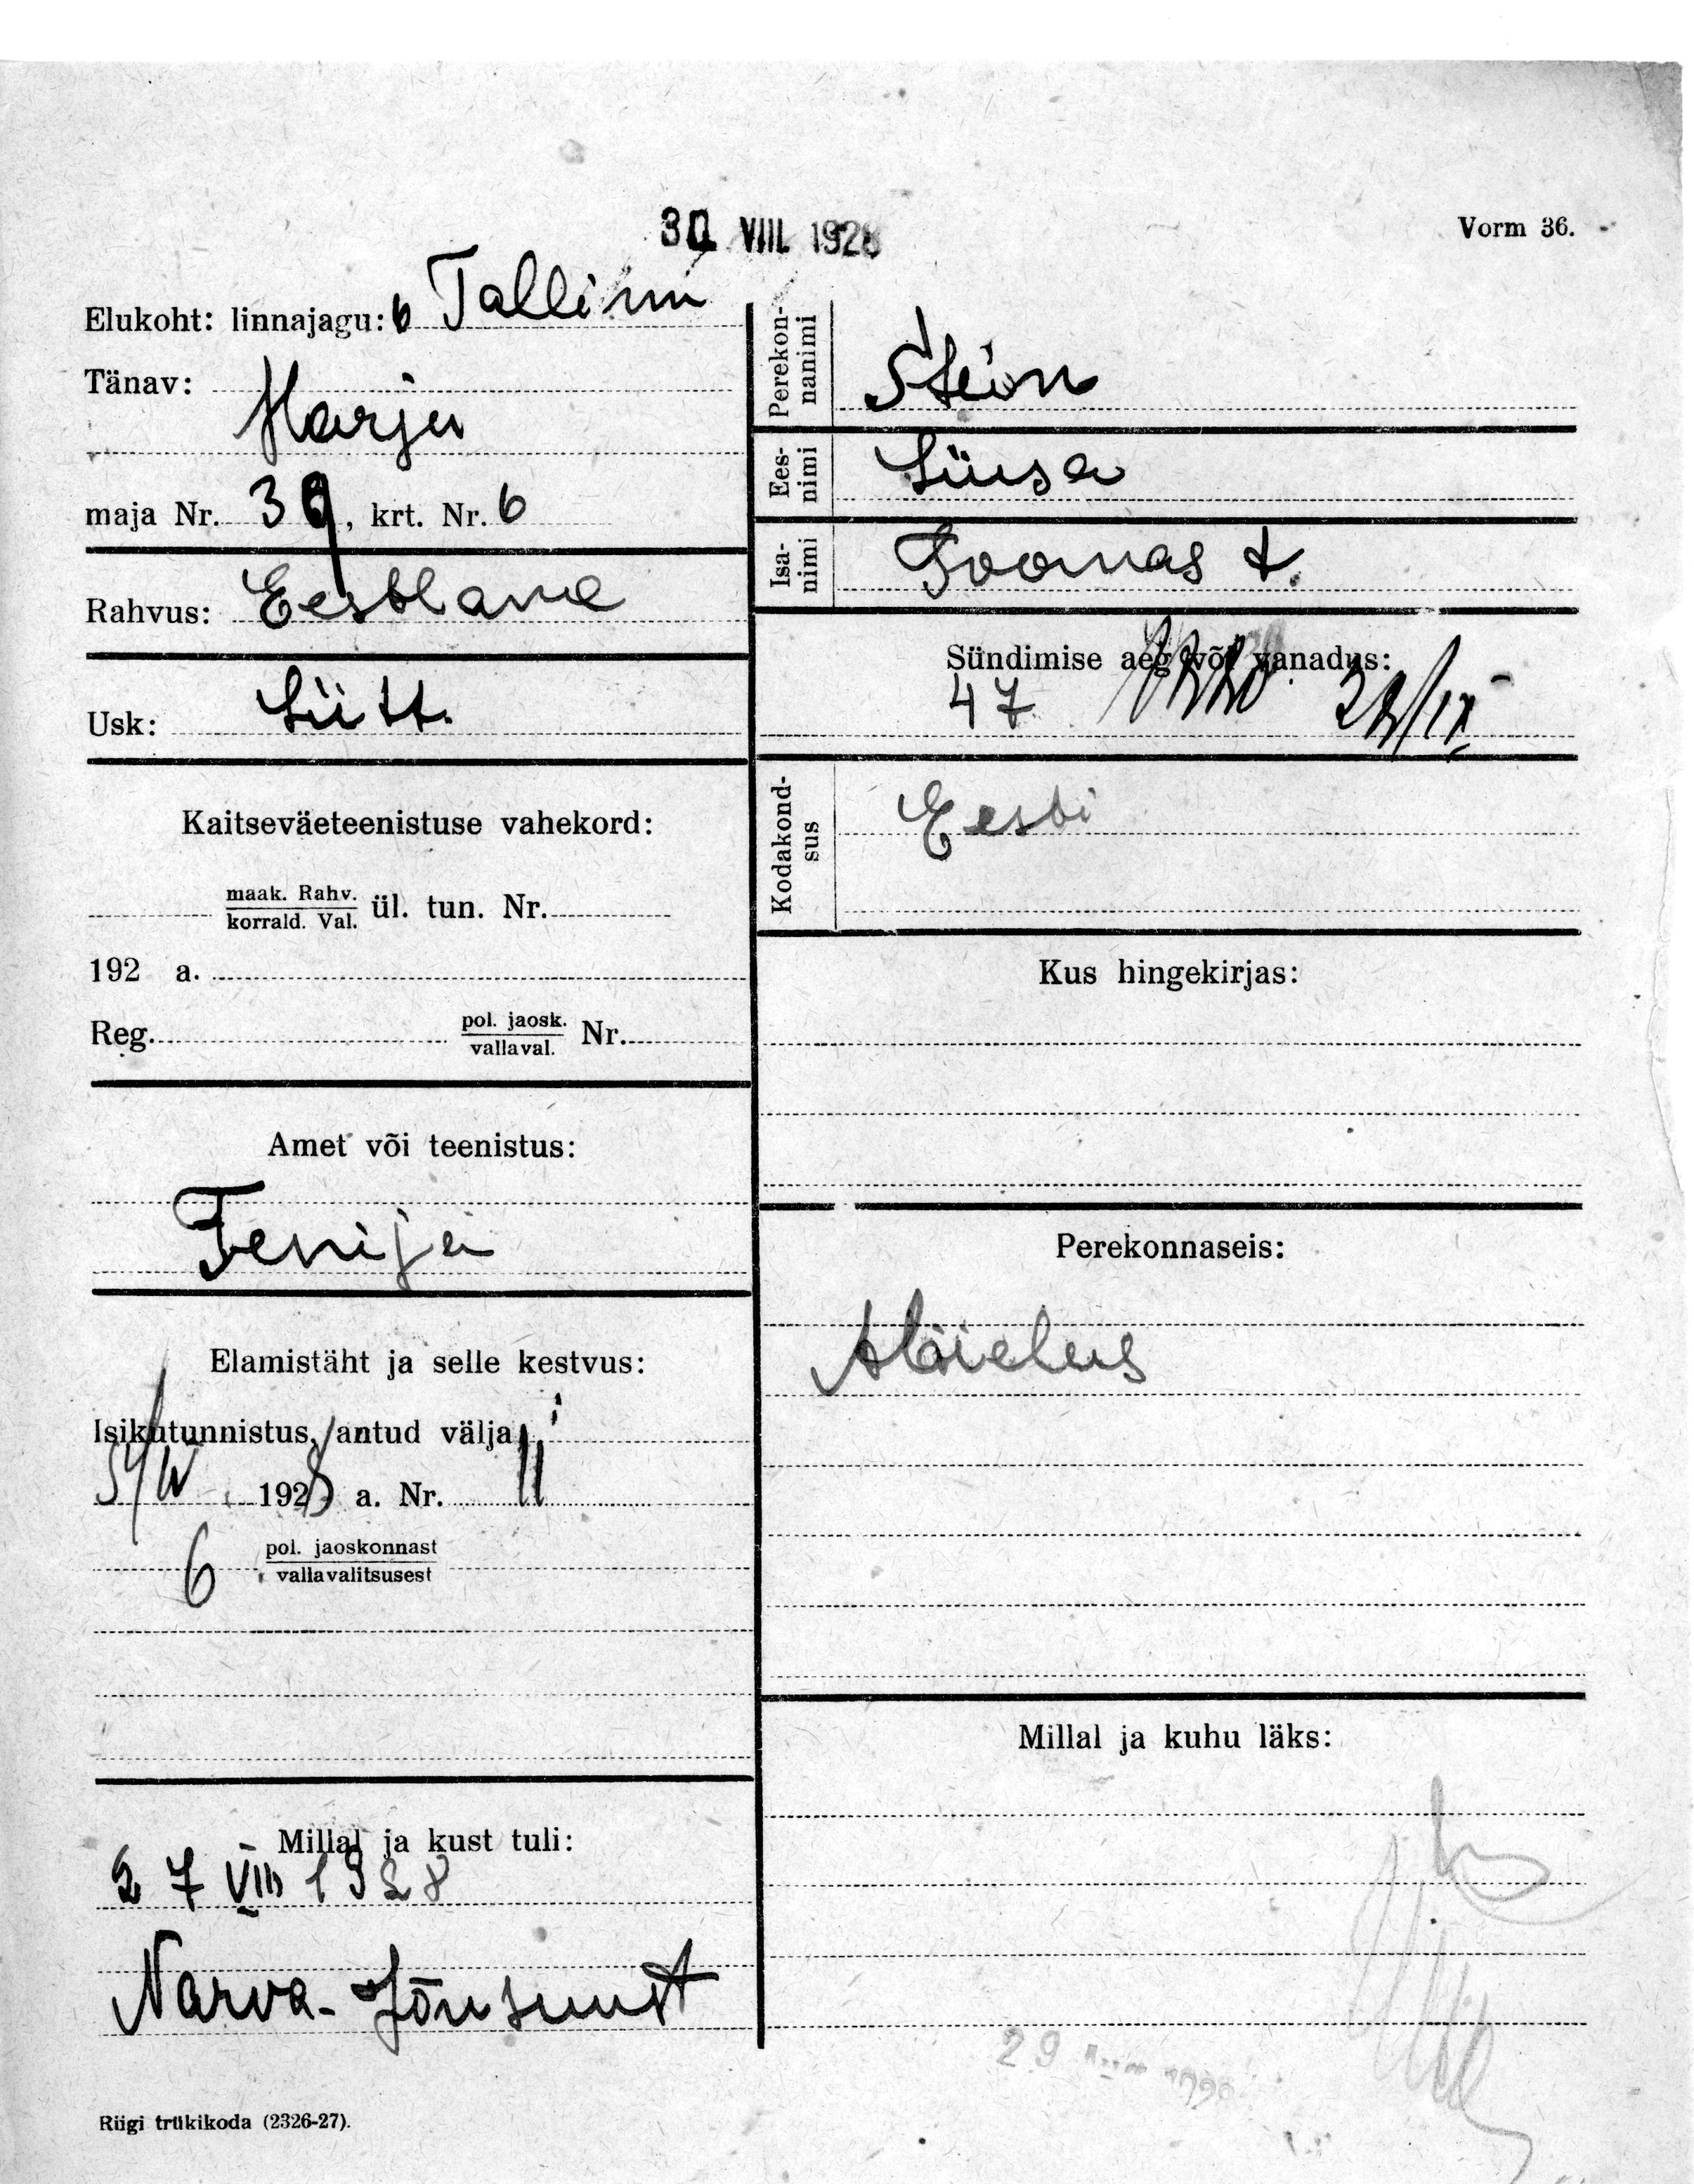 30 VIII 1928
Vorm 36.
Elukoht: linnajagu: 6 Tallinn
Tänav:
Harju
maja Nr. 39, krt. Nr. 6
Rahvus: Eestlane
Usk: Lütt.
Kaitseväeteenistuse vahekord:
maak. Rahv.
korrald. Val. ül. tun. Nr.
192 a.
Reg. pol. jaosk.
vallaval. Nr.
Amet või teenistus:
Tenija
Elamistäht ja selle kestvus:
Isikutunnistus, antud välja
1928 a. Nr. 11
6 pol. jaoskonnast
vallavalitsusest
Millal ja kust tuli:
27 VIII 1928
Narva-Jõusuust
Riigi trükikoda (2326-27).
Perekon-
nanimi
Stein
Ees-
nimi
Liisa
Isa-
nimi
Toomas t.
Sündimise aeg või vanadus:
47
Kodakond-
sus
Eesti
Kus hingekirjas:
Perekonnaseis:
Abielus
Millal ja kuhu läks:
29